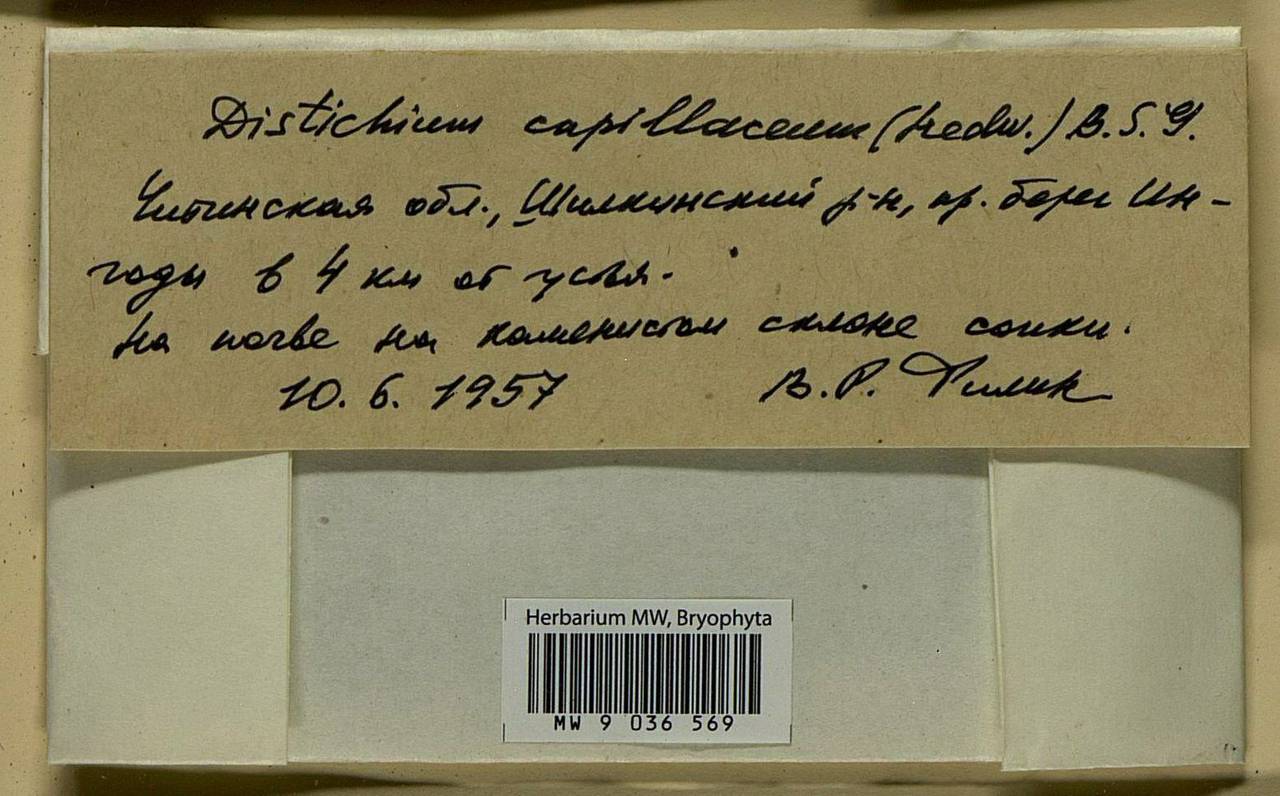 Distichium capillaceum (Hedw.) B. S. G.
Читинская обл., Шилкинский р-н, пр. берег Ин-
годы в 4 км от устья.
На почве на каменистом склоне сопки.
10. 6. 1957 В. Р. Филин
Herbarium MW, Bryophyta
MW 9 036 569